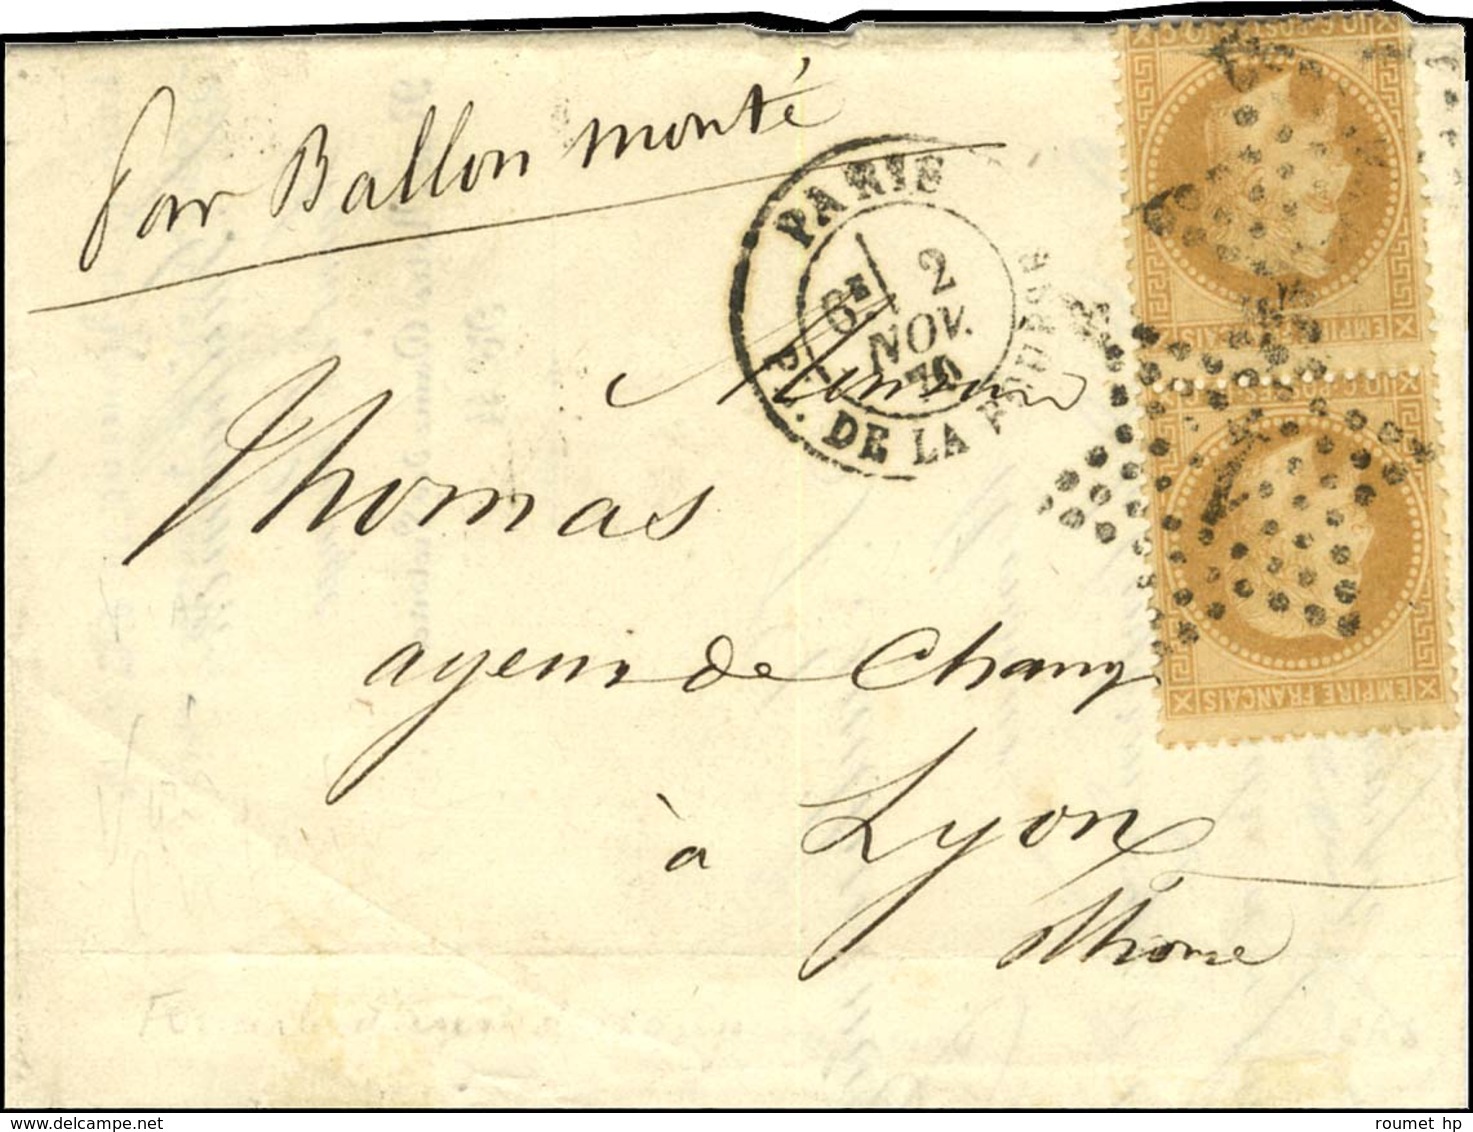 Par Ballon monté
PARIS
6E 2
NOV.
70
PL. DE LA BOURSE
Monsieur
Thomas
agent de Change
à Lyon
Rhône
EMPIRE FRANÇAIS
EMPIRE FRANÇAIS
roumet hp